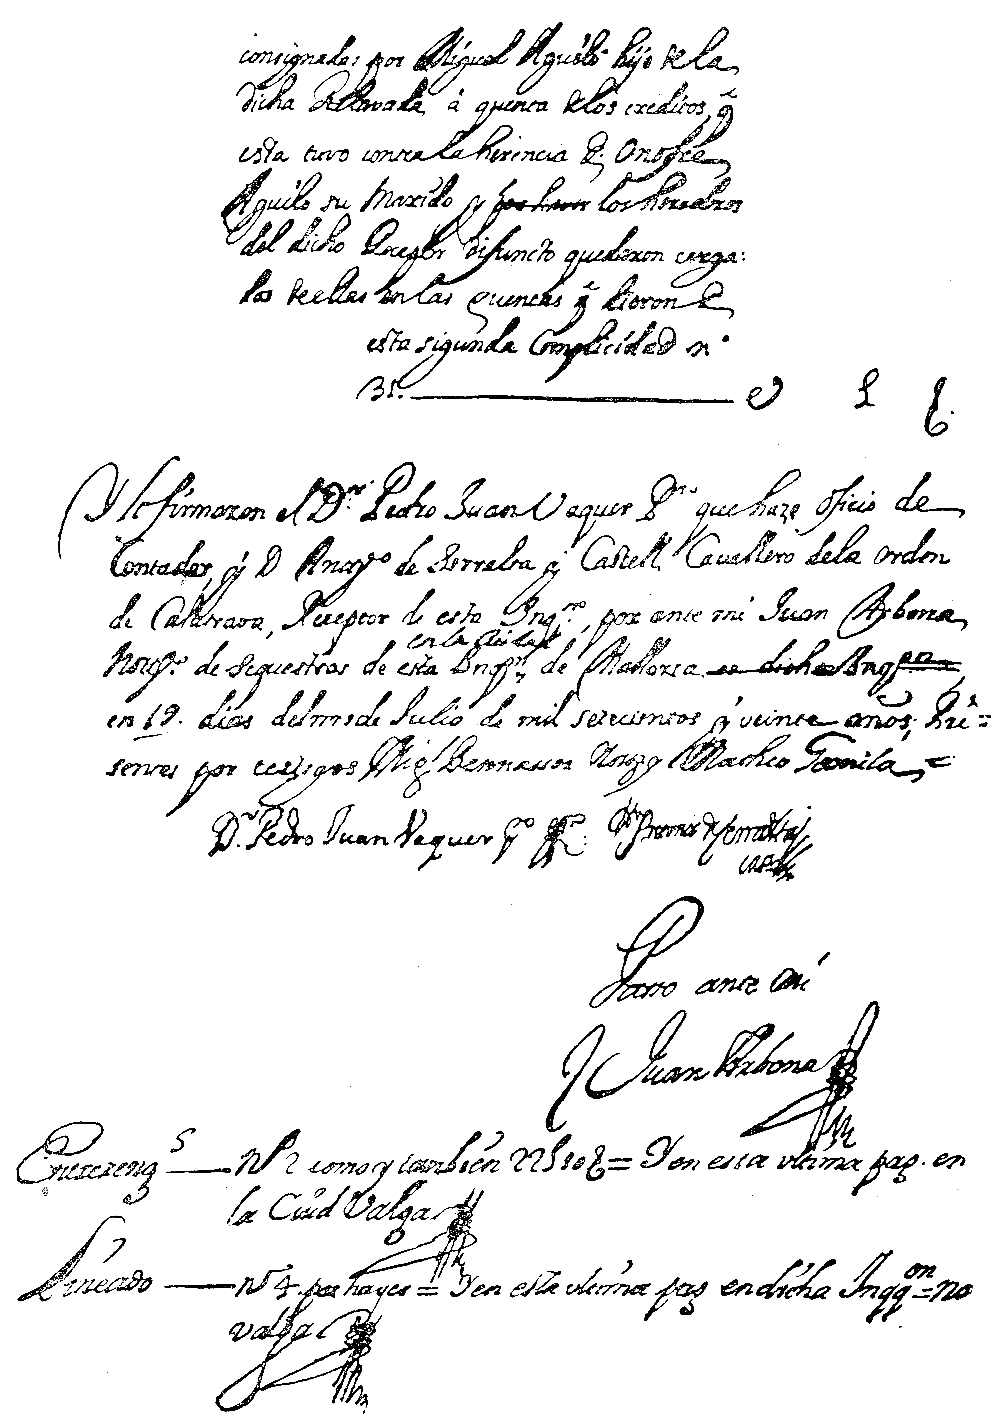 consignadas por Miguel Aguiló hijo de la
dicha Relaxada à quenta de los creditos, q̃
esta tuvo contra la herencia de Onofre
Aguilo su Marido y por haver los herederos
del dicho Receptor difuncto quedaron carga:
dos de ellas en las quentas q̃ dieron de
esta segunda Complicidad n.º
35. L
Y lo firmaron el D.r Pedro Juan Vaquer P.ro que haze oficio de
Contador, y D. de Serralta y Castell Cavallero de la orden
de Calatrava, Receptor de esta Inq.on, por ante mi Juan Arbona
en la Ciudad
Not.o de sequestros de esta Inq.on, de Mallorca en dicha Inqq.on
en 19. dias del mes de Julio de mil setecientos y veinte años; Pre=
sentes por testigos Mig.l Bennassar Not.o y Matheo =
D.r Pedro Juan Vaquer
Passo ante mi
Juan Arbona
Entrereng.s — N.º 2 como y tambien = Y en esta ultima pag. en
la Ciud Valga
Lineado — N 4. por haver = Y en esta ultima pag en dicha Inqq.on = no
valga